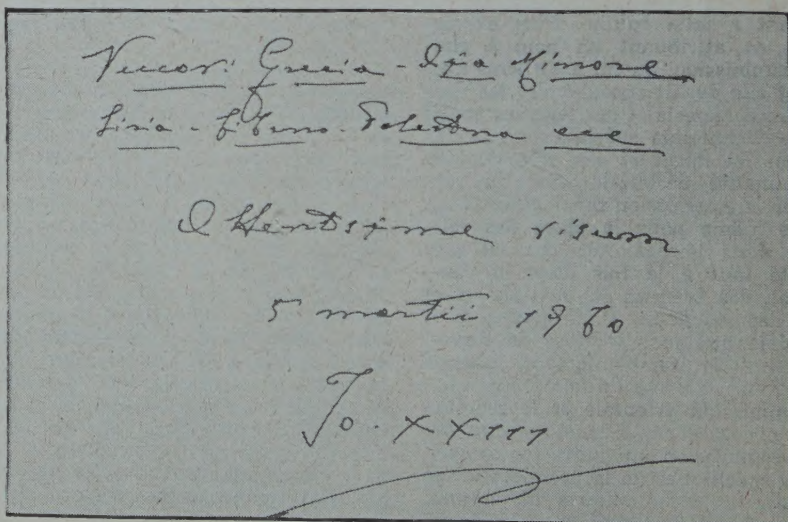 Vescovi Grecia - Asia Minore
Siria - Libano - Palestina ecc
Attentissime visum
5 martii 1960
Jo. XXIII